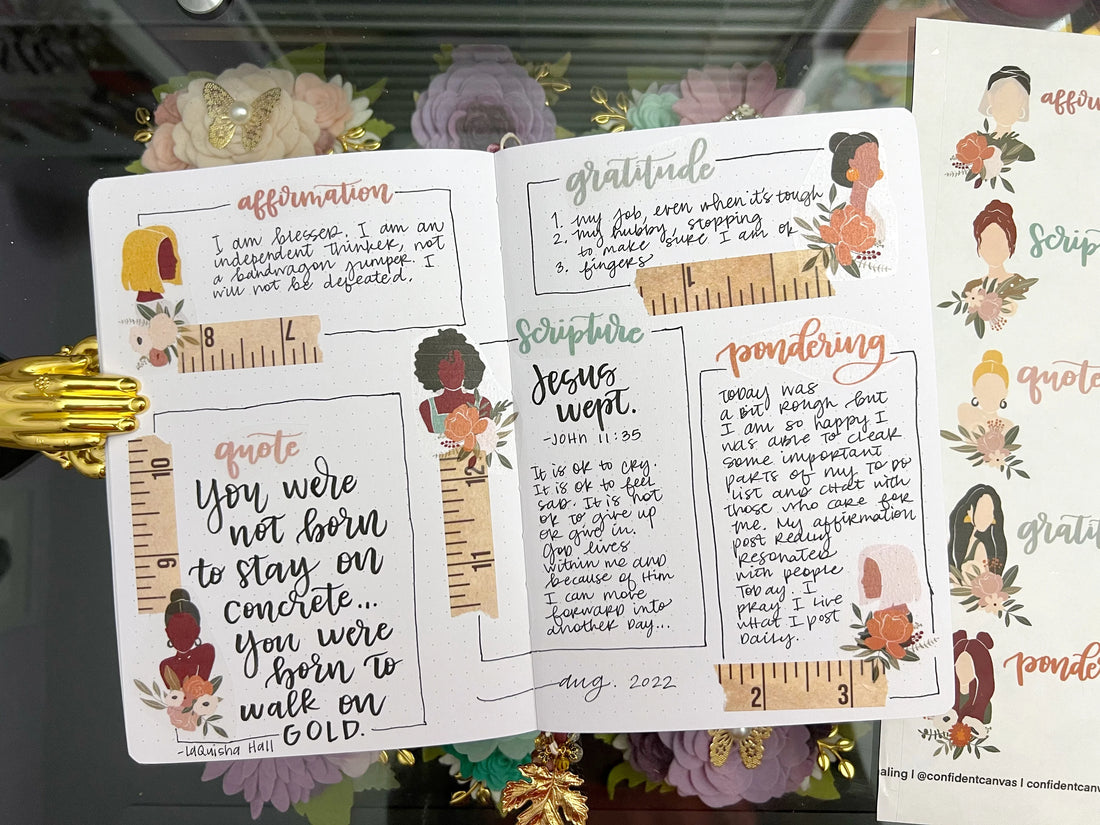 affirmation
I am blessed. I am an
independent thinker, not
a bandwagon jumper. I
will not be defeated.
8 7
10
9
quote
You were
not born
to stay on
concrete...
You were
born to
walk on
GOLD.
-LaQuisha Hall
gratitude
1. my job, even when it's tough
2. my hubby, stopping
to make sure I am ok
3. fingers
1
scripture
Jesus
wept.
-John 11:35
It is ok to cry.
It is ok to feel
sad. It is not
ok to give up
or give in.
God lives
within me and
because of Him
I can move
forward into
another day...
12
11
pondering
Today was
a bit rough but
I am so happy I
was able to clear
some important
parts of my to do
list and chat with
those who care for
me. My affirmation
post really
resonated
with people
today. I
pray I live
what I post
daily.
2 3
aug. 2022
affir
scrip
quote
grati
ponde
aling | @confidentcanvas | confidentcanv